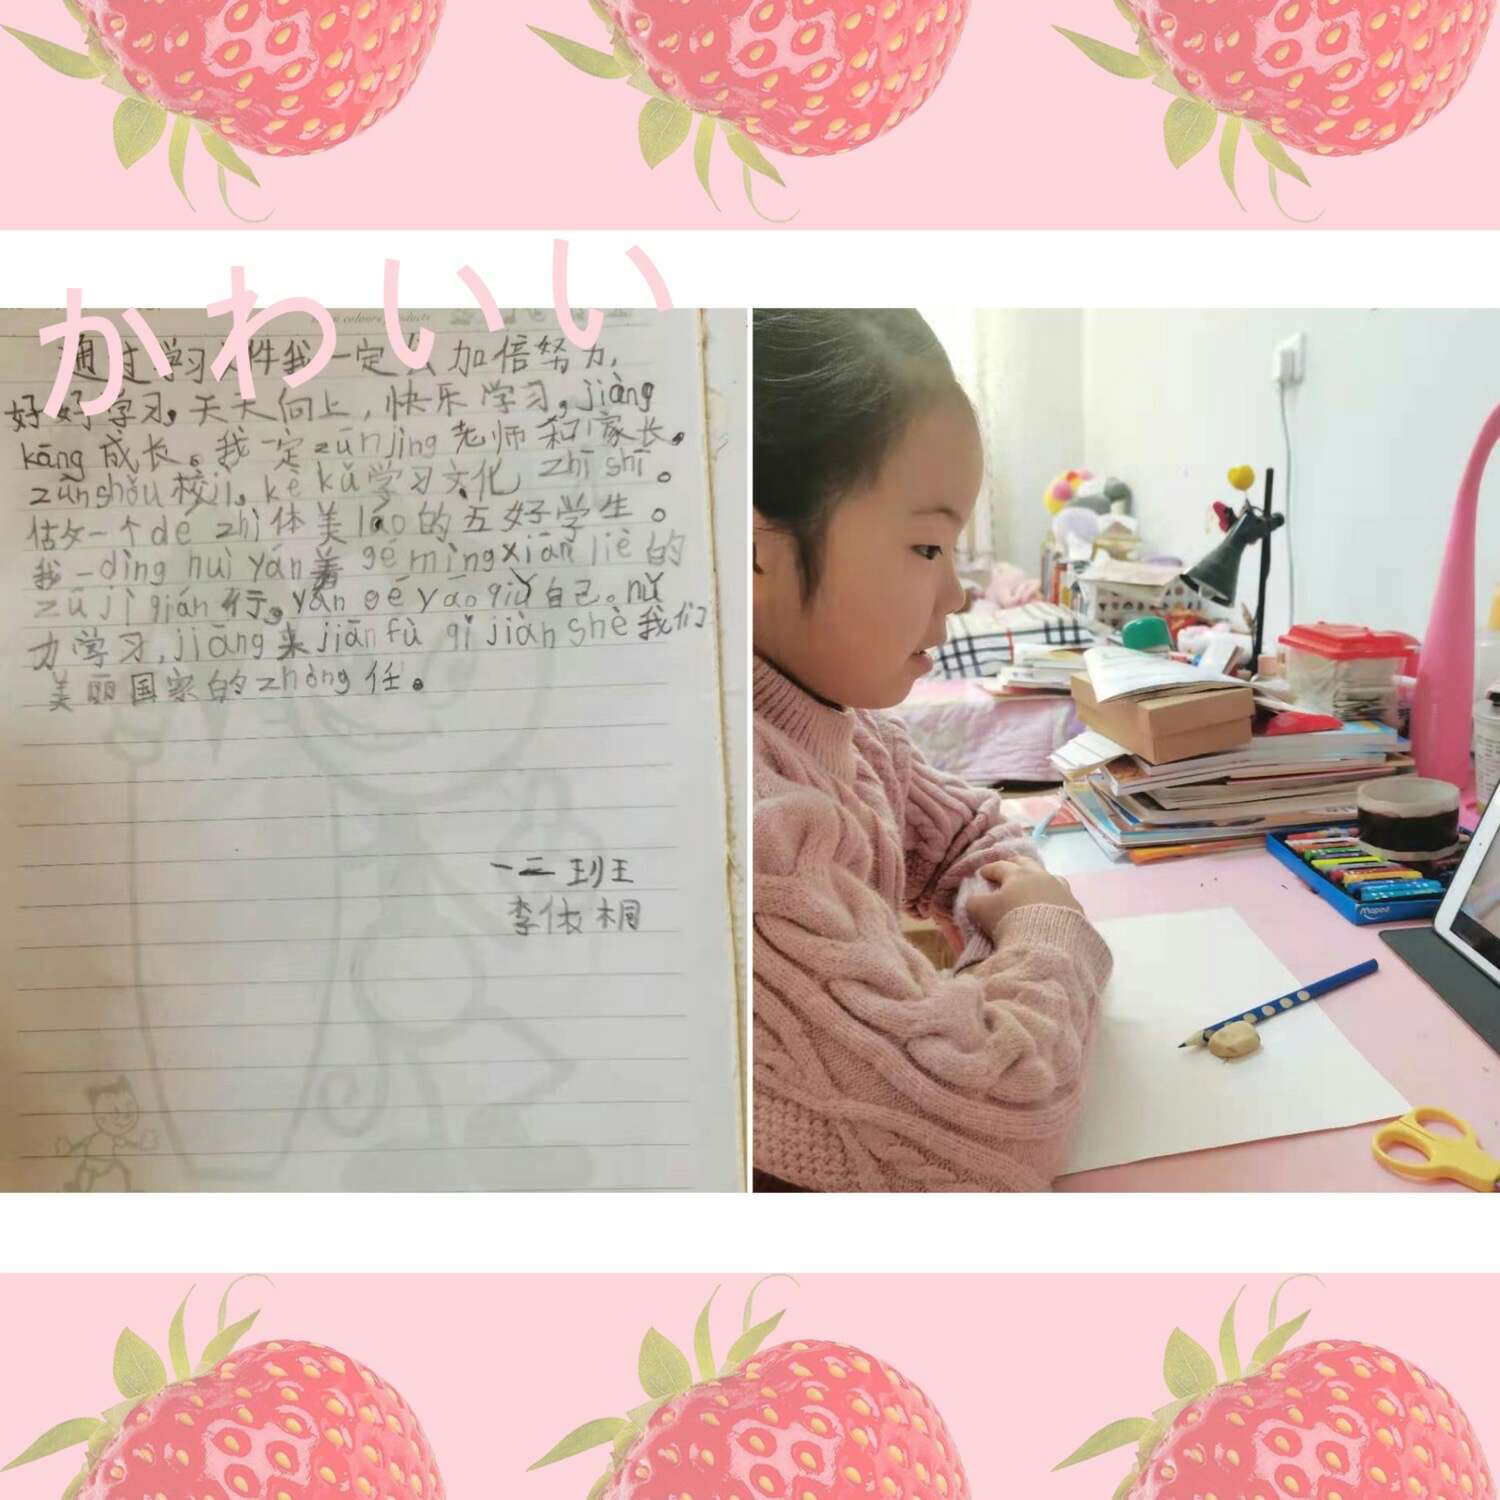 かわいい
colours products
通过学习文件我一定会加倍努力,
好好学习,天天向上,快乐学习,jiàng
kāng成长。我一定zūn jìng老师和家长。
zūn shǒu校jì,kè kǔ学习文化zhī shī。
估女一个dé zhì体美láo的五好学生。
我一dìng huì yán着gé mìng xiān liè的
zú jì qián行,yán gé yāo qiú自己。nǔ
力学习,jiāng来jiān fù qǐ jiàn shè我们
美丽国家的zhòng任。
一二班王
李依桐
Maped